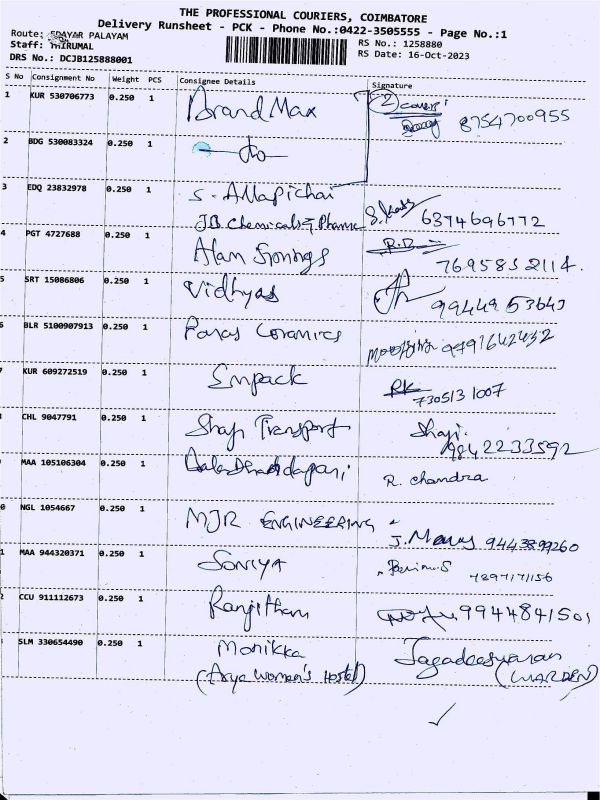 THE PROFESSIONAL COURIERS, COIMBATORE
Delivery Runsheet - PCK - Phone No.:0422-3505555 - Page No.:1
Route: EDAYAR PALAYAM
Staff: THIRUMAL
DRS No.: DCJB125888001
RS No.: 1258880
RS Date: 16-Oct-2023
S No Consignment No Weight PCS Consignee Details Signature
1 KUR 530706773 0.250 1 Brand Max 2 8754700955
2 BDG 530083324 0.250 1 do
3 EDQ 23832978 0.250 1 S. Allapichai
JB. Chemicals & Pharma 6374696772
4 PGT 4727688 0.250 1 Alan R.B
7695832114.
5 SRT 15086806 0.250 1 Vidhyas 9944953643
6 BLR 5100907913 0.250 1 Paras Ceramics 9791642432
7 KUR 609272519 0.250 1 Smpack RK
7305131007
CHL 9047791 0.250 1 Shaji Transport Shaji.
9842233592
9 MAA 105106304 0.250 1 R. Chandra
0 NGL 1054667 0.250 1 MJR ENGINEERING J. Mary 9443899260
1 MAA 944320371 0.250 1 SONIYA 7297171156
2 CCU 911112673 0.250 1 Ranjitham 9944841501
SLM 330654490 0.250 1 Monikka Jagadeeswaran
(Arya Women's Hostel) (WARDEN)